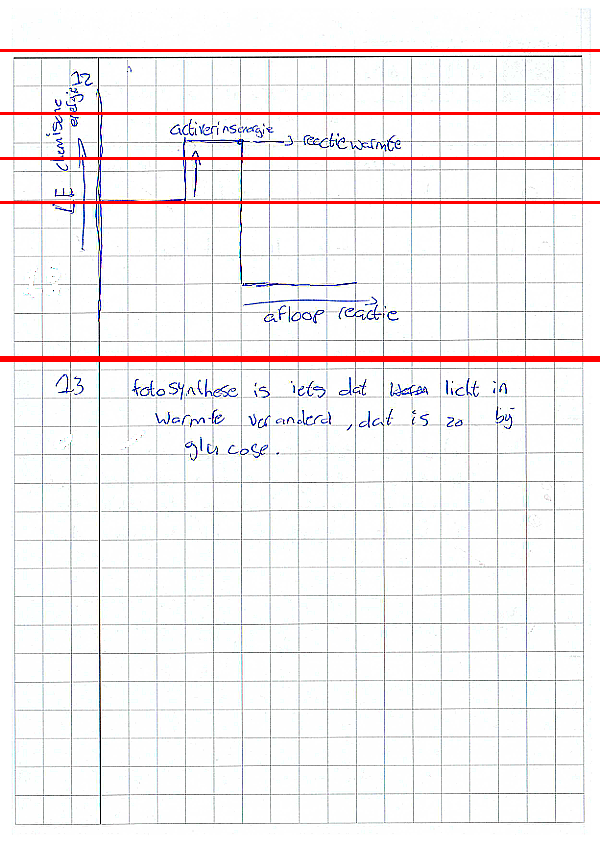 12
ΔE chemische
energie
activeringsenergie
→ reactiewarmte
afloop reactie
13 fotosynthese is iets dat licht in
warmte veranderd, dat is zo bij
glucose.